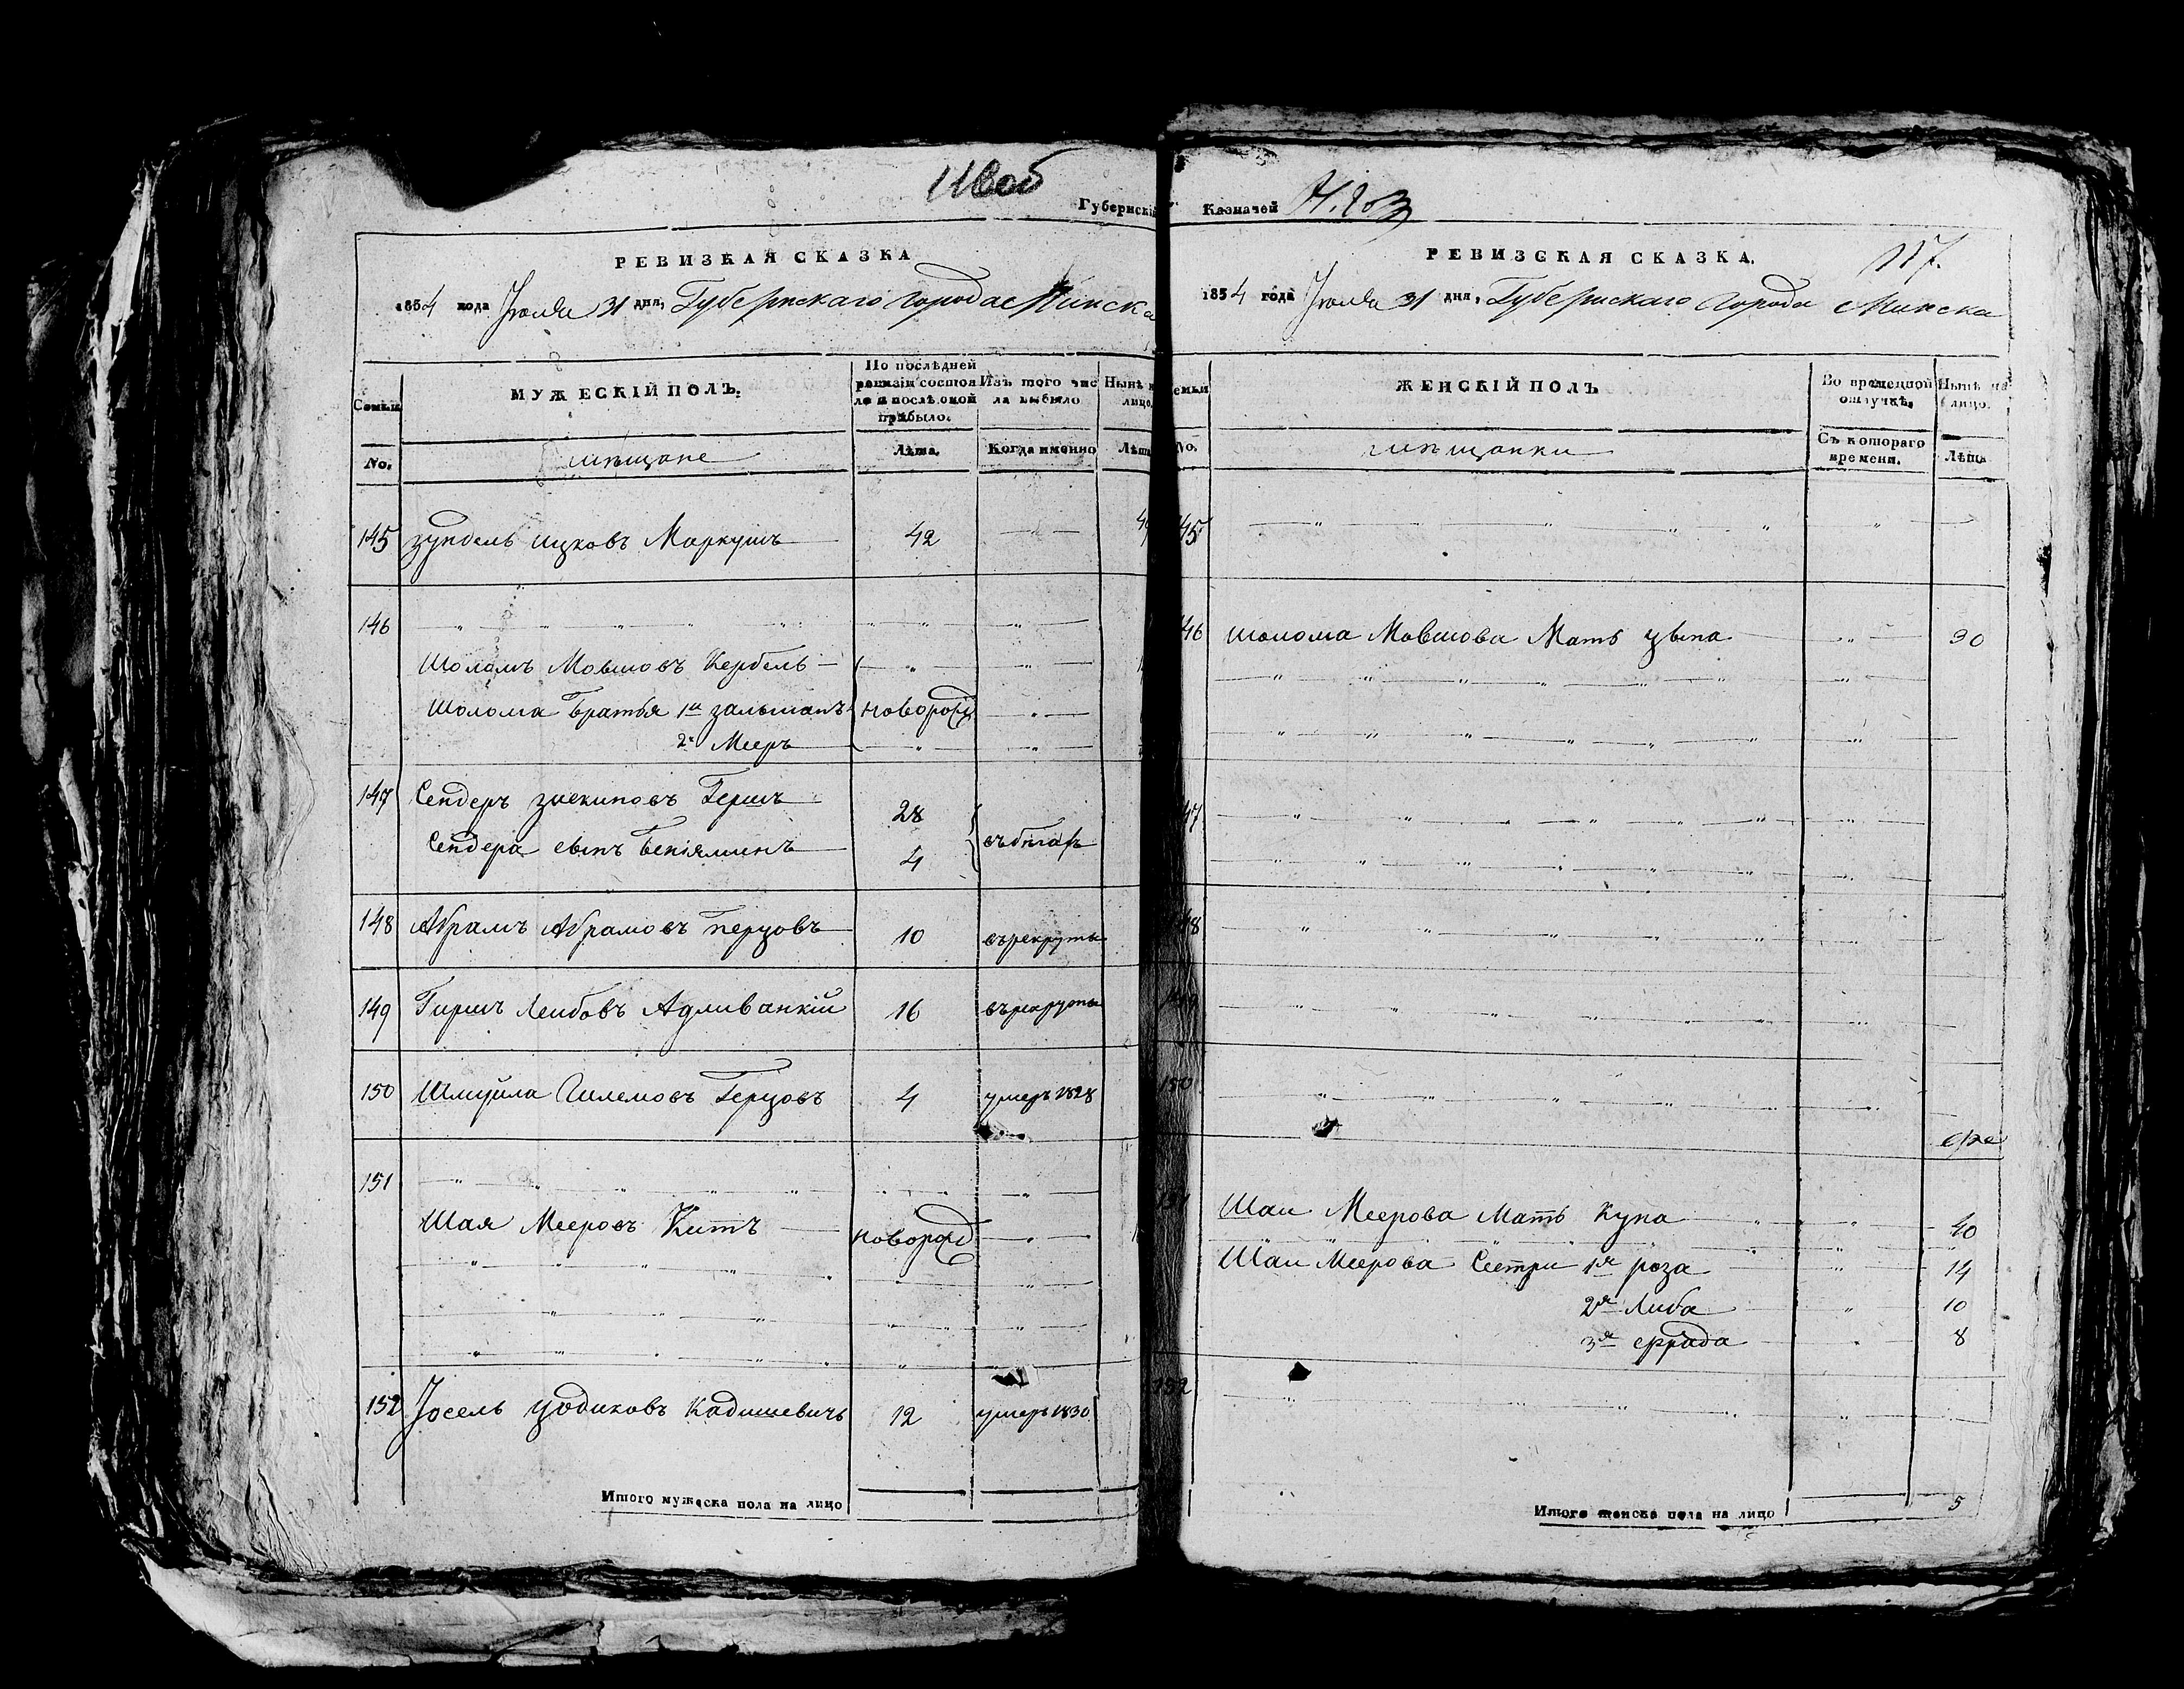 Губернскій
РЕВИЗКАЯ СКАЗКА
1854 года Іюля 31 дня, Губернскаго города Минска
Семьи
МУЖЕСКІЙ ПОЛЪ.
По послѣдней ревизіи состоя
ло и послѣ оной прибыло.
Изъ того чис
ла выбыло
Нынѣ
лицо
No.
мѣщане
Лѣта.
Когда именно
Лѣта
145 Зундель Ицковъ Маркушъ 42
146
Шоломъ Мовшовъ Кербель
Шолома братья 1й Зальманъ новорожд
2й Мееръ
147 Сендеръ Зискиновъ Гершъ 28
Сендера сынъ Беніяминъ 4 въ бѣгах
148 Абрамъ Абрамовъ Перцовъ 10 въ рекруты
149 Гиршъ Лейбовъ Адливанкій 16 въ рекруты
150 Шмуйла Гилемовъ Герцовъ 4 умеръ 1828
151
Шая Мееровъ Китъ новорожд
152 Іосель Цодиковъ Кадишевичъ 12 умеръ 1830
Итого мужеска пола на лицо
Казначей
117.
РЕВИЗСКАЯ СКАЗКА.
1854 года Іюля 31 дня, Губернскаго города Минска
семьи
ЖЕНСКІЙ ПОЛЪ
Во временной
отлучкѣ.
Нынѣ на
лицо.
No.
мѣщанки
Съ котораго
времени.
Лѣта
145
146 Шолома Мовшова Мать Цыпа 30
147
148
149
150
151 Шаи Меерова Мать Куна 40
Шаи Меерова Сестри 1я Роза 14
2я Либа 10
3я Фрада 8
152
Итого женска пола на лицо 5